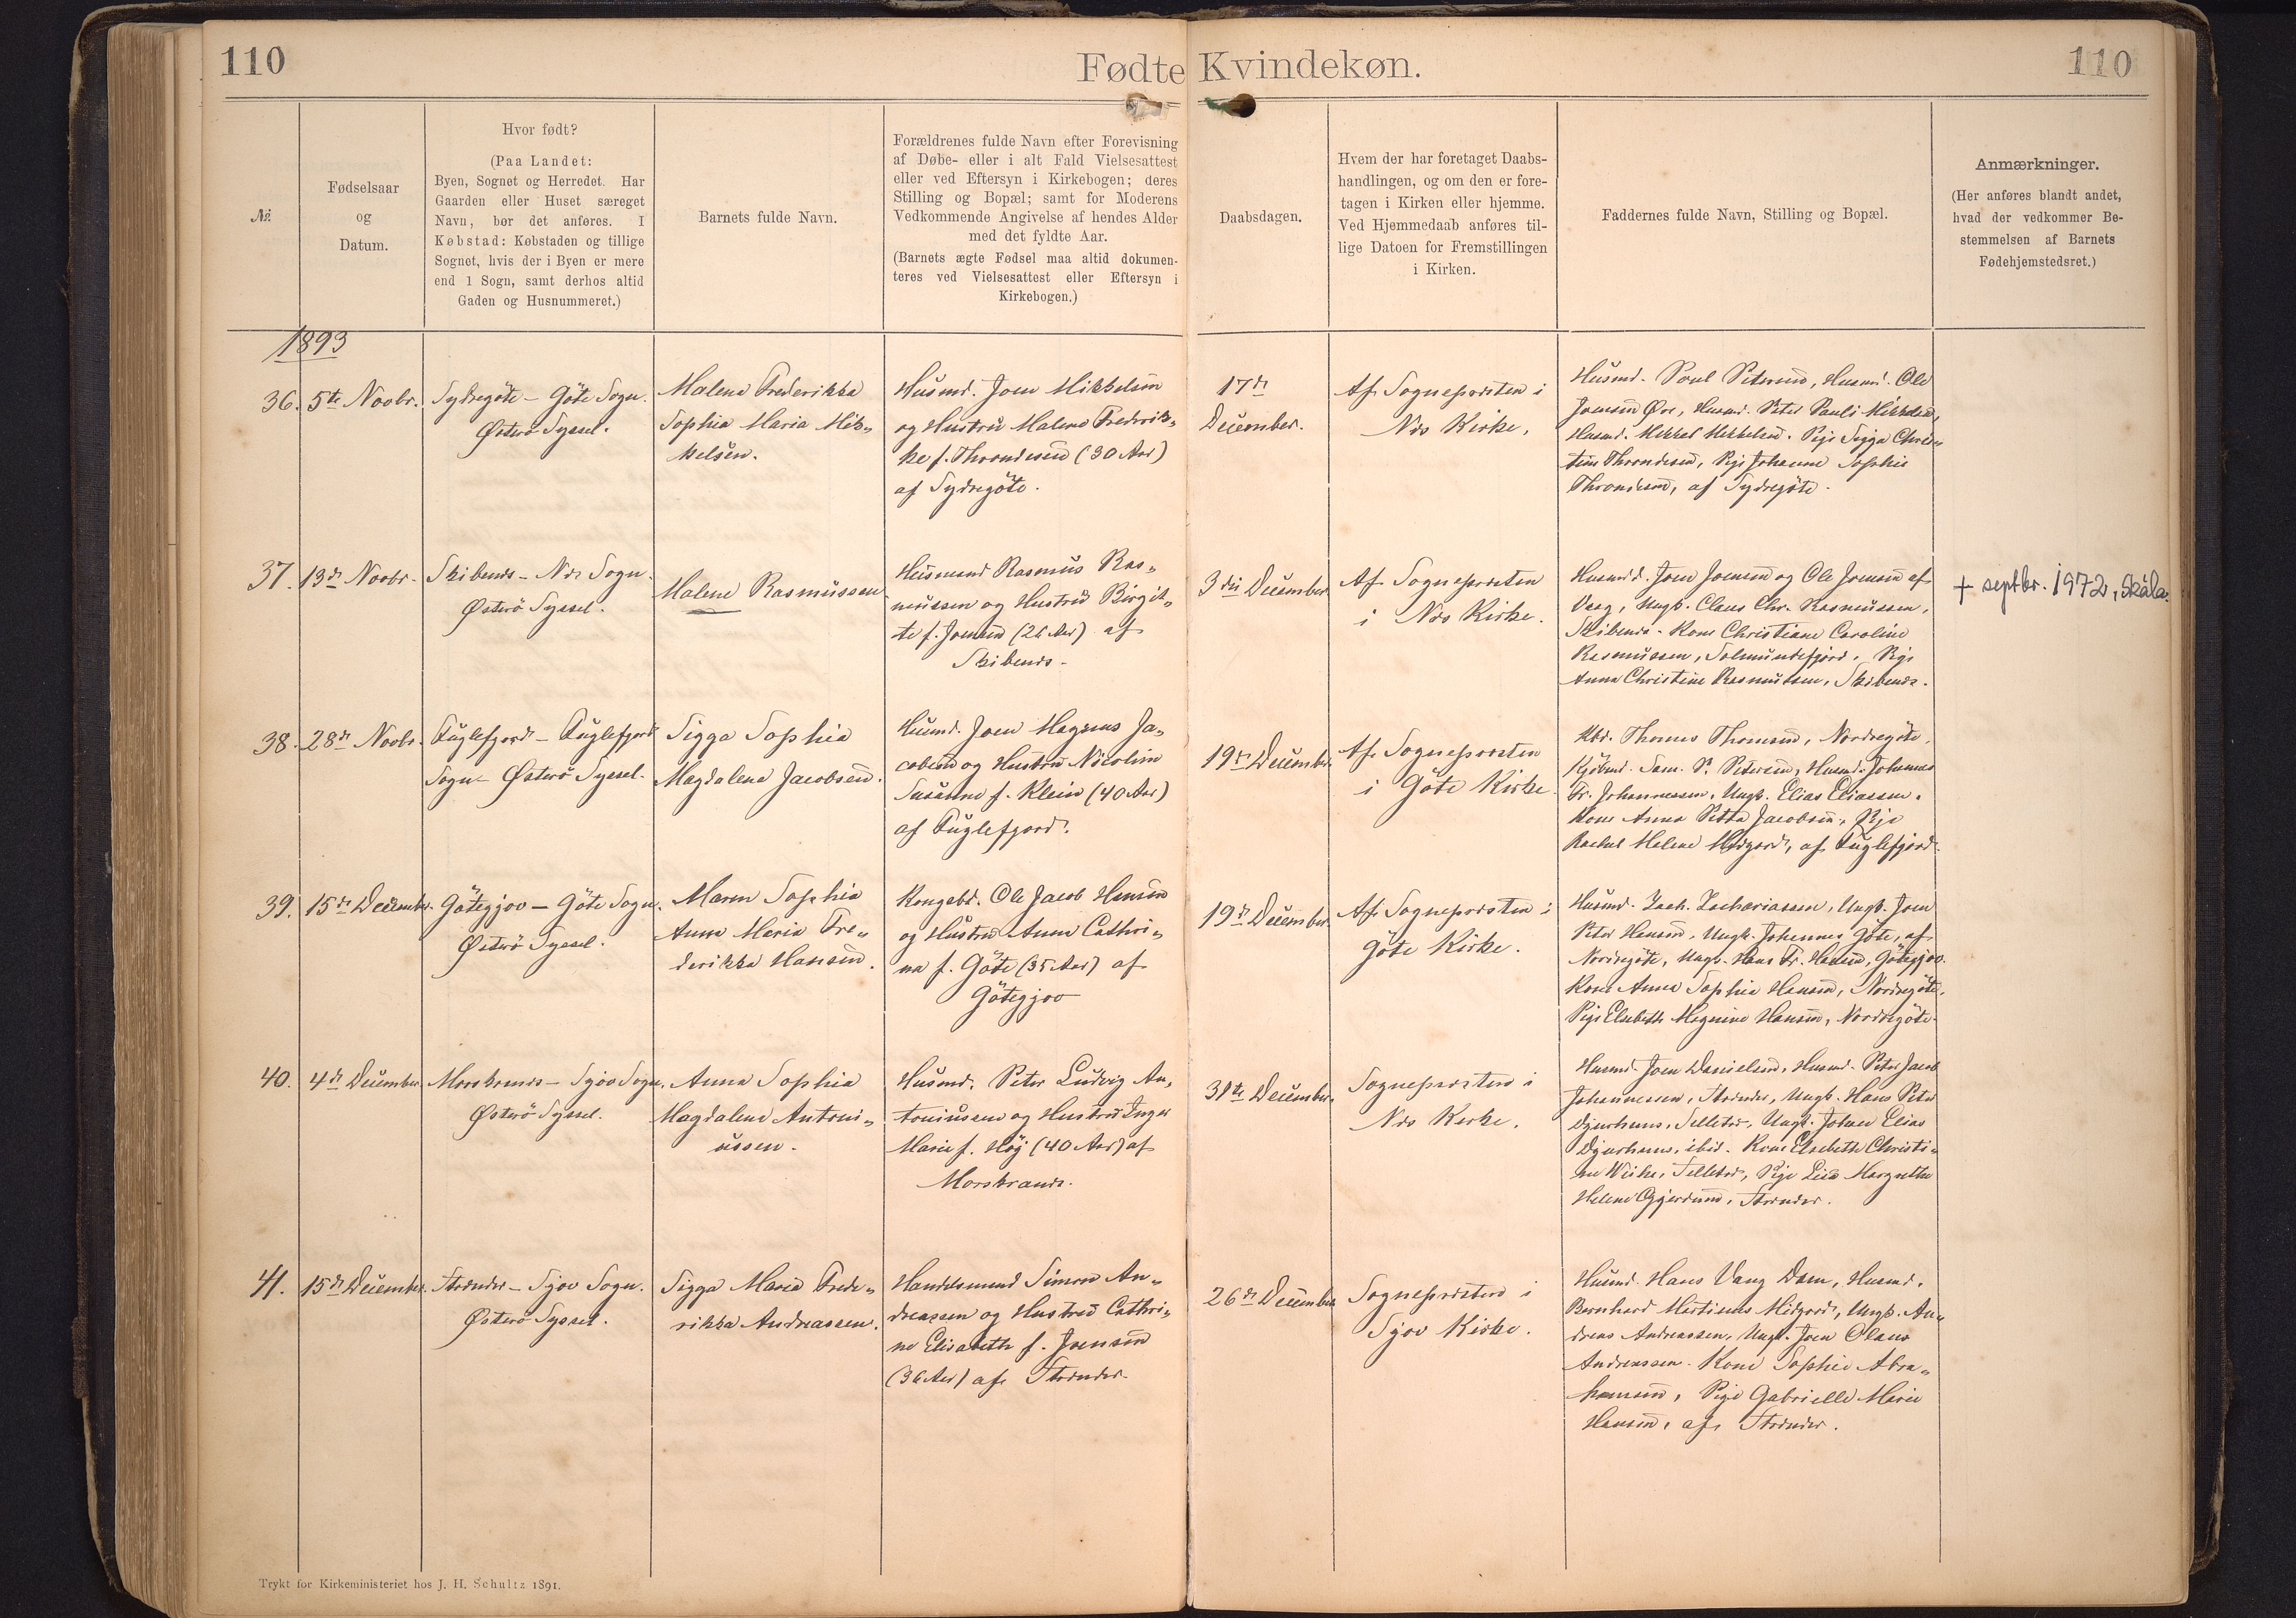 110
Fødte Kvindekøn.
110
№
Fødselsaar
og
Datum.
Hvor født?
(Paa Landet:
Byen, Sognet og Herredet. Har
Gaarden eller Huset særeget
Navn, bør det anføres. I
Købstad: Købstaden og tillige
Sognet, hvis der i Byen er mere
end 1 Sogn, samt derhos altid
Gaden og Husnummeret.)
Barnets fulde Navn.
Forældrenes fulde Navn efter Forevisning
af Døbe- eller i alt Fald Vielsesattest
eller ved Eftersyn i Kirkebogen; deres
Stilling og Bopæl; samt for Moderens
Vedkommende Angivelse af hendes Alder
med det fyldte Aar.
(Barnets ægte Fødsel maa altid dokumen-
teres ved Vielsesattest eller Eftersyn i
Kirkebogen.)
Daabsdagen.
Hvem der har foretaget Daabs-
handlingen, og om den er fore-
tagen i Kirken eller hjemme.
Ved Hjemmedaab anføres til-
lige Datoen for Fremstillingen
i Kirken.
Faddernes fulde Navn, Stilling og Bopæl.
Anmærkninger.
(Her anføres blandt andet,
hvad der vedkommer Be-
stemmelsen af Barnets
Fødehjemstedsret.)
1893
36.
5te Novbr.
Sydregöte - Göte Sogn.
Østerö Syssel.
Malene Frederikka
Sophia Maria Mik„
kelsen.
Husmd. Joen Mikkelsen
og Hustru Malene Frederik„
ke f. Throndesen (30 Aar)
af Sydregöte.
17de
December.
Af Sognepresten i
Nes Kirke.
Husmd. Poul Petersen, Husmd. Ole
Joensen Øre, Husmd. Peter Pauli Mikkelsen,
Husmd. Mikkel Mikkelsen. Pige Sigga Chris„
tine Throndesen, Pige Johanne Sophie
Throndesen, af Sydregöte.
37.
13de Novbr.
Skibenes - Nes Sogn.
Østerö Syssel.
Malene Rasmussen
Husmand Rasmus Ras„
mussen og Hustru Birgit„
te f. Joensen (26 Aar) af
Skibenes.
3die December
Af Sognepresten
i Nes Kirke.
Husmd. Joen Joensen og Ole Joensen af
Vaag, Ungk. Claus Chr. Rasmussen,
Skibenes. Kone Christiane Caroline
Rasmussen, Solmundefjord, Pige
Anna Christine Rasmussen, Skibenes.
+ septbr. 1972, Skála.
38.
28de Novbr.
Fuglefjord - Fuglefjord
Sogn - Østerö Syssel.
Sigga Sophia
Magdalena Jacobsen.
Husmd. Joen Magnus Ja„
cobsen og Hustru Nicoline
Susanne f. Klein (40 Aar)
af Fuglefjord.
19de December.
Af Sognepresten
i Göte Kirke.
Kbd. Thomas Thomsen, Nordregöte,
Kjöbmd. Sam. P. Petersen, Husmd. Johannes
Fr. Johannessen, Ungk. Elias Eliassen.
Kone Anna Jacobsen, Pige
Rachel Malene Midgord, af Fuglefjord.
39.
15de December.
Götegjov - Göte Sogn.
Østerö Syssel.
Maren Sophia
Anna Maria Fre„
derikka Hansen.
Kongsbd. Ole Jacob Hansen
og Hustru Anna Cathri„
na f. Göte (35 Aar) af
Götegjov
19de December.
Af Sognepresten i
Göte Kirke.
Husmd. Zach. Zachariassen, Ungk. Joen
Peter Hansen, Ungk. Johannes Göte, af
Nordregöte, Ungk. Hans Fr. Hansen, Götegjov.
Kone Anna Sophie Hansen, Nordregöte,
Pige Elsebeth Magnine Hansen, Nordregöte.
40.
4de December.
Morskranes - Sjov Sogn.
Østerö Syssel.
Anna Sophia
Magdalene Antoni„
ussen.
Husmd. Peter Ludvig An„
toniussen og Hustru Inger
Marie f. Höj (40 Aar) af
Morskranes.
31te December.
Sognepresten i
Nes Kirke.
Husmd. Joen Danielsen, Husmd. Peter Jacob
Johannessen, Strender, Ungk. Hans Peter
Djurhuus, Selletrö, Ungk. Johan Elias
Djurhuus, ibid. Kone Elsebeth Christi„
ne Weihe, Selletrö, Pige Lisa Margretha
Helene Strender.
41.
15de December.
Strender - Sjov Sogn.
Østerö Syssel.
Sigga Maria Frede„
rikka Andreassen.
Handelsmand Simon An„
dreassen og Hustru Cathri„
ne Elisabeth f. Joensen
(36 Aar) af Strender.
26de December
Sognepresten i
Sjov Kirke.
Husmd. Hans Vang Dam, Husmd.
Bernhard Martinus Midgord, Ungk. An„
dreas Andreassen, Ungk. Joen Olaus
Andreassen. Kone Sophie Abra„
hamsen, Pige Gabrielle Marie
Hansen, af Strender.
Trykt for Kirkeministeriet hos J. H. Schultz 1891.